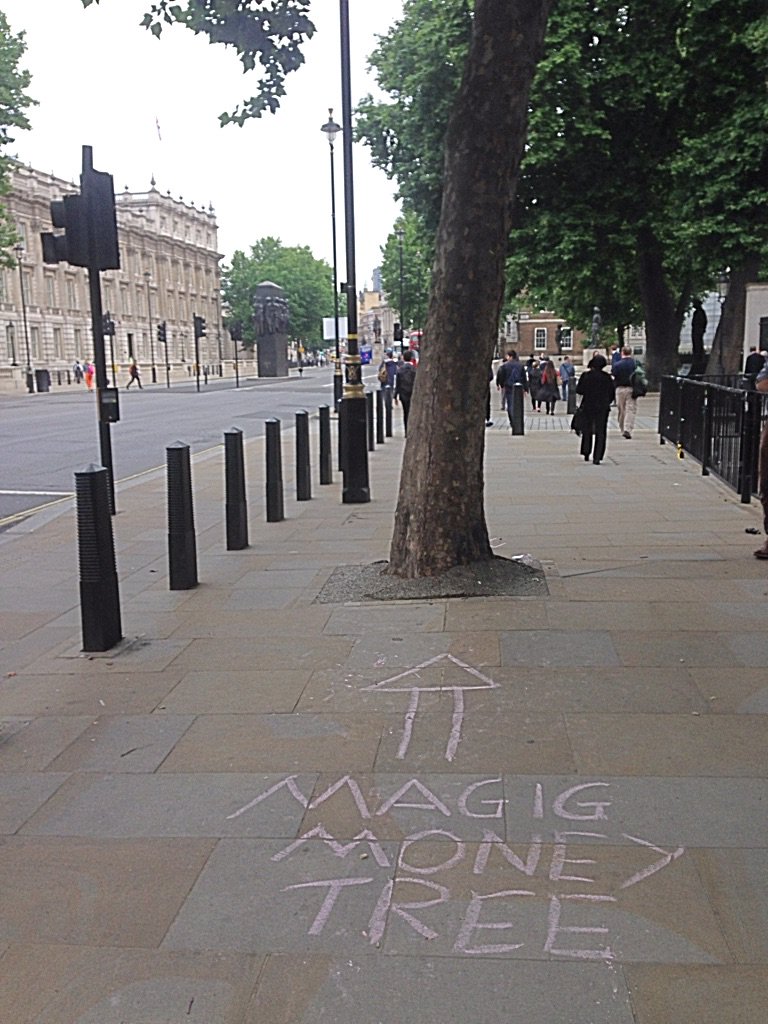 MAGIC
MONEY
TREE